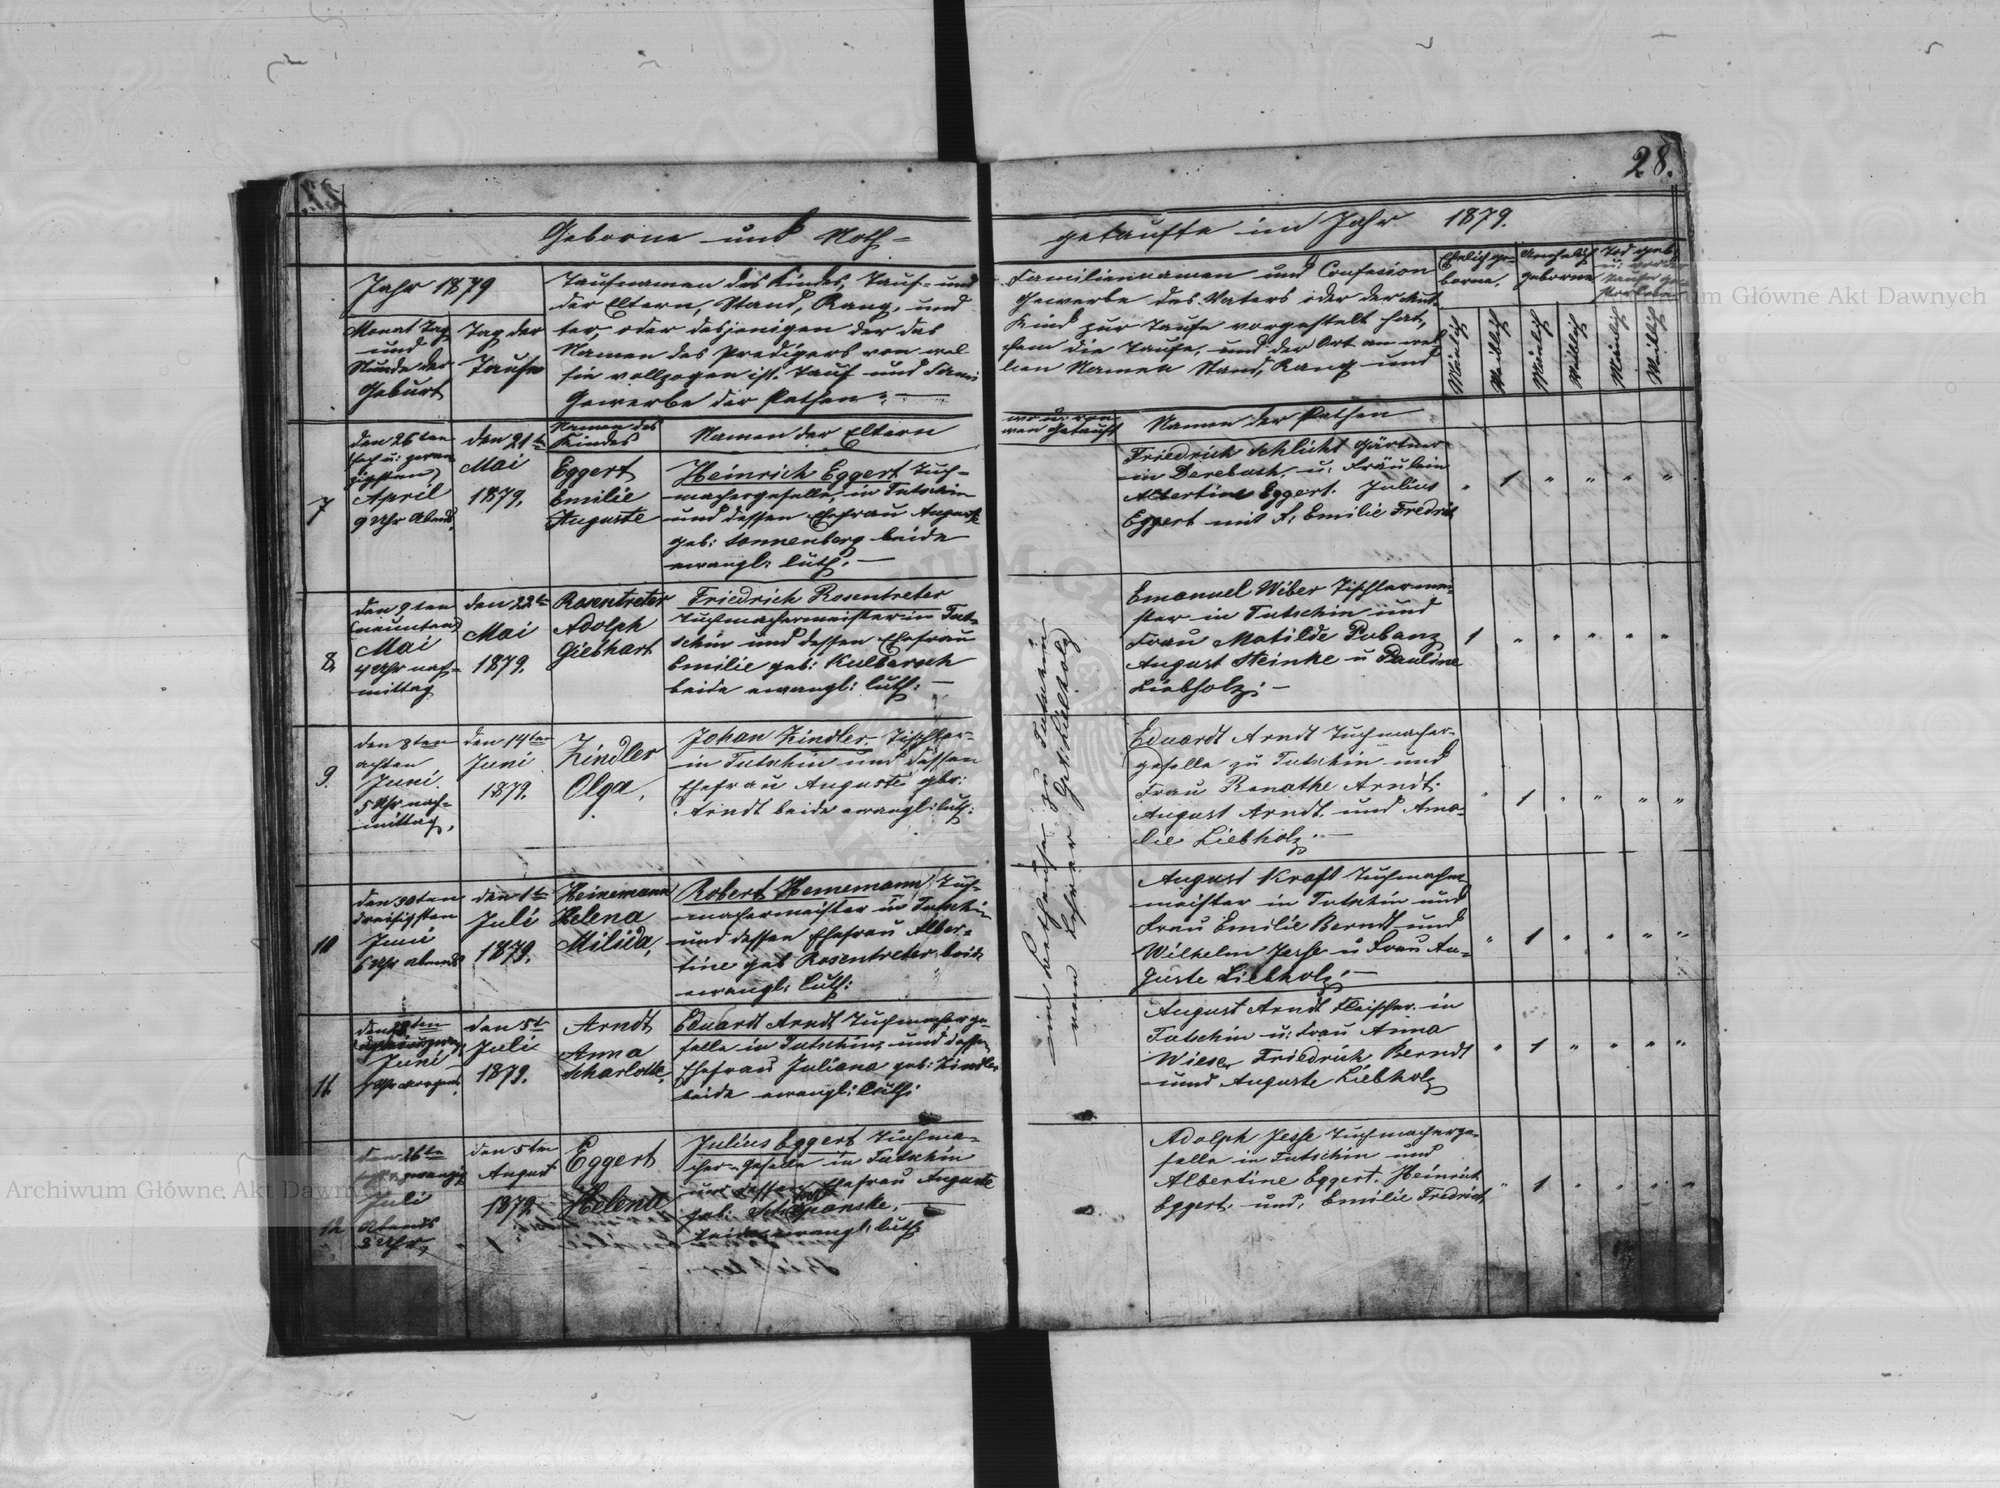 28.
Geborne und Noth=
getaufte im Jahr 1879.
Jahr 1879
Monat Tag
und
Stunde der
Geburt
Tag der
Taufe
Taufnamen des Kindes, Tauf- und
der Eltern, Stand, Rang, und
ter, oder desjenigen der das
Namen des Predigers von wel
sie vollzogen ist. Tauf und Fami
Gewerbe der Pathen. —
Familiennamen und Confesion
Gewerbe des Vaters oder der Mut
Kind zur Taufe vorgestelt hat,
chem die Taufe, und der Ort an wel
lien Namen Stand, Rang und
Ehelich ge-
borne,
Unehelich
geborne
Tod geb.
Mänlich
Weiblich
Mänlich
Weiblich
Mänlich
Weiblich
Namen des
Kindes
Namen der Eltern
wo u. von
wen getauft
Namen der Pathen
im Bethause zu Tutschin
vom Lehrer Gst. Liebholz
7
den 26ten
April
9 Uhr Abend,
den 21te
Mai
1879.
Eggert
Emilie
Auguste
Heinrich Eggert Tuch-
machergeselle, in Tutschin
und dessen Ehefrau Auguste
geb: Sonnenberg beide
ewangl: luth. —
Friedrich Schlicht Gärtner
in Derebash, u. Fräulein
Albertine Eggert. Julius
Eggert mit F. Emilie Fredrich
" 1 " " " "
8
den 9ten
(neunten)
Mai
4 Uhr nach-
mittag
den 22te
Mai
1879.
Rosentreter
Adolph
Giebhart
Friedrich Rosentreter
Tuchmachermeister in Tut-
schin und dessen Ehefrau
Emilie geb: Kulbarsch
beide ewangl: luth: —
Emanuel Wiber Tischlermei-
ster in Tutschin und
Frau Matilde Pubanz
August Steinke u Pauline
Liebholz: —
1 " " " " "
9.
den 8ten
achten
Juni
5 Uhr nach-
mittag,
den 14ten
Juni
1879.
Zindler
Olga,
Johan Zindler, Tischler-
in Tutschin und dessen
Ehefrau Auguste gbr:
Arndt beide ewangl: luth:
Eduardt Arndt Tuchmacher-
geselle zu Tutschin und
Frau Renathe Arndt.
August Arndt, und Ama-
lie Liebholz. —
" 1 " " " "
10
den 30ten
dreisigsten
Juni
6 Uhr Abends
den 1te
Juli
1879.
Heinemann
Helena
Milida,
Robert Hennemann Tuch-
machermeister in Tutschin
und dessen Ehefrau Alber-
tine geb Rosentreter beide
ewangl: luth:
August Kraft Tuchmacher
meister in Tutschin und
Frau Emilie Berndt und
Wilhelm Jesse u Frau Au-
guste Liebholz. —
" 1 " " " "
11.
Juni
den 5t
Juli
1879.
Arndt
Anna
Scharlotte,
Eduardt Arndt Tuchmacherge-
selle in Tutschin, und dessen
Ehefrau Juliana geb: Zindler
beide ewangl: luth:
August Arndt Fleischer in
Tutschin u: Frau Anna
Wiese, Friedrich Berndt
und Auguste Liebholz
" 1 " " " "
12
den 26te
Juli
Abends
8 Uhr,
den 5ten
August
1879.
Eggert
Helena
Julius Eggert Tuchma-
cher-Geselle in Tutschin
und dessen Ehefrau Auguste
beide ewangl: luth
Adolph Jesse Tuchmacherge-
selle in Tutschin und
Albertine Eggert. Heinrich
Eggert. und, Emilie Fredrich
" 1 " " " "
Archiwum Główne Akt Dawnych
Archiwum Główne Akt Dawnych